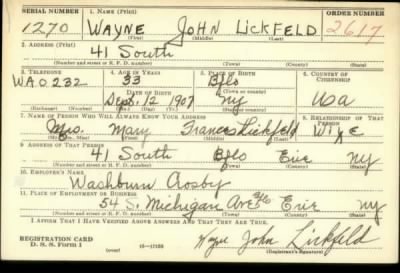 SERIAL NUMBER 1. NAME (Print) ORDER NUMBER
1270 WAYNE JOHN LICKFELD 2617
(First) (Middle) (Last)
2. ADDRESS (Print)
41 South
(Number and street or R. F. D. number) (Town) (County) (State)
3. TELEPHONE 4. AGE IN YEARS 5. PLACE OF BIRTH 6. COUNTRY OF CITIZENSHIP
WA 0232 33 Bflo
DATE OF BIRTH (Town or county)
Sept. 12 1907 NY Usa
(Exchange) (Number) (Mo.) (Day) (Yr.) (State or country)
7. NAME OF PERSON WHO WILL ALWAYS KNOW YOUR ADDRESS 8. RELATIONSHIP OF THAT PERSON
Mrs. Mary Frances Lickfeld Wife
(Mr., Mrs., Miss) (First) (Middle) (Last)
9. ADDRESS OF THAT PERSON
41 South Bflo Erie NY
(Number and street or R. F. D. number) (Town) (County) (State)
10. EMPLOYER'S NAME
Washburn Crosby
11. PLACE OF EMPLOYMENT OR BUSINESS
54 S. Michigan Ave Bflo Erie NY
(Number and street or R. F. D. number) (Town) (County) (State)
I AFFIRM THAT I HAVE VERIFIED ABOVE ANSWERS AND THAT THEY ARE TRUE.
REGISTRATION CARD
D. S. S. Form 1 Wayne John Lickfeld
(Registrant's signature)